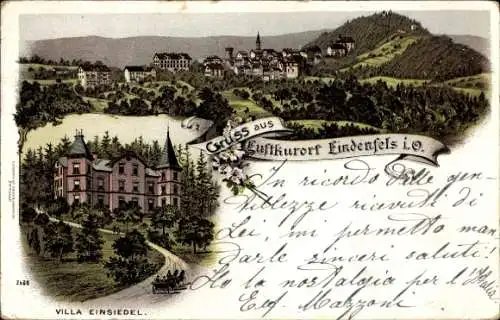 Gruss aus
Luftkurort Lindenfels i. O.
In ricordo della gen-
tilezze ricevute di
Lei, mi permetto man
darle sinceri saluti!
Ho la nostalgia per l'Italia
Mazzoni
7486
VILLA EINSIEDEL.